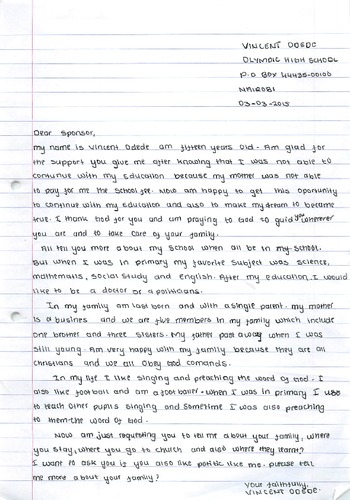 VINCENT ODEDE
OLYMPIC HIGH SCHOOL
P.O BOX 44435-00100
NAIROBI
03-03-2015
Dear Sponsor,
my name is Vincent Odede am fifteen years old. Am glad for
the support you give me after knowing that I was not able to
continue with my education because my mother was not able
to pay for me the school fee. Now am happy to get this oportunity
to continue with my education and also to make my dream to became
true. I thank God for you and am praying to God to guid you wherever
you are and to take care of your family.
All tell you more about my school when all be in my school.
But when I was in primary my favorite subject was science,
mathematis, social study and english. After my education I would
like to be a doctor or a politicians.
In my family am last born and with a single parent. my mother
is a busines and we are five members in my family which include
one brother and three sisters. My father past away when I was
still young. Am very happy with my family because they are all
christians and we all obey God comands.
In my life I like singing and preaching the word of God. I
also like football and am a footballer. when I was in primary I use
to teach other pupils singing and sometime I was also preaching
to them the word of God.
Now am just requesting you to tell me about your family, where
you stay, where you go to church and also where they learn?
I want to ask you is you also like politic like me. please tell
me more about your family?
Your faithfully,
VINCENT ODEDE.